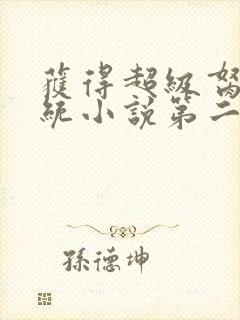 獲得超級
統小說第二
孫德坤